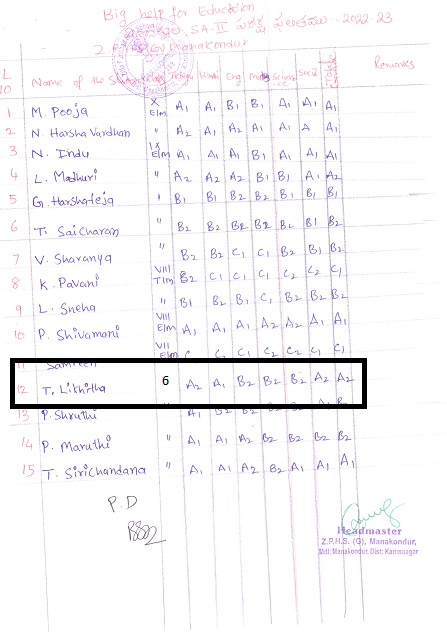 Big help for Education
SA-II పరీక్ష ఫలితము - 2022-23
Z.P.H.S (G) Manakondur
Name of the Telugu Hindi Eng Maths Science Social Grade Remarks
1 M. Pooja X E/m A1 A1 B1 B1 A1 A1 A1
2 N. Harsha Vardhan " A2 A1 A2 A1 A1 A A1
3 N. Indu IX E/m A1 A1 A1 B1 A1 A1 A1
4 L. Madhuri " A2 A2 A2 B1 B1 A1 A2
5 G. Harshateja " B1 B1 B2 B2 B1 B1 B1
6 T. Saicharan " B2 B2 B2 B2 B2 B1 B2
7 V. Sharanya " B2 B2 C1 C1 B2 B2 B2
8 K. Pavani VIII T/m B2 C1 C1 C1 C2 C2 C1
9 L. Sneha " B1 B2 B1 C1 B2 B2 B2
10 P. Shivamani VIII E/m A1 A1 A1 A2 A2 A1 A1
11 Samreen VII E/m C2 C1 C2 C2 C1 C1
12 T. Likhitha 6 A2 A1 B2 B2 B2 A2 A2
13 P. Shruthi "
14 P. Maruthi " A1 A1 A2 B2 B2 B2 B2
15 T. Sirichandana " A1 A1 A2 B2 A1 A1 A1
P.D
Headmaster
Z.P.H.S. (G), Manakondur,
Mdl: Manakondur, Dist: Karimnagar